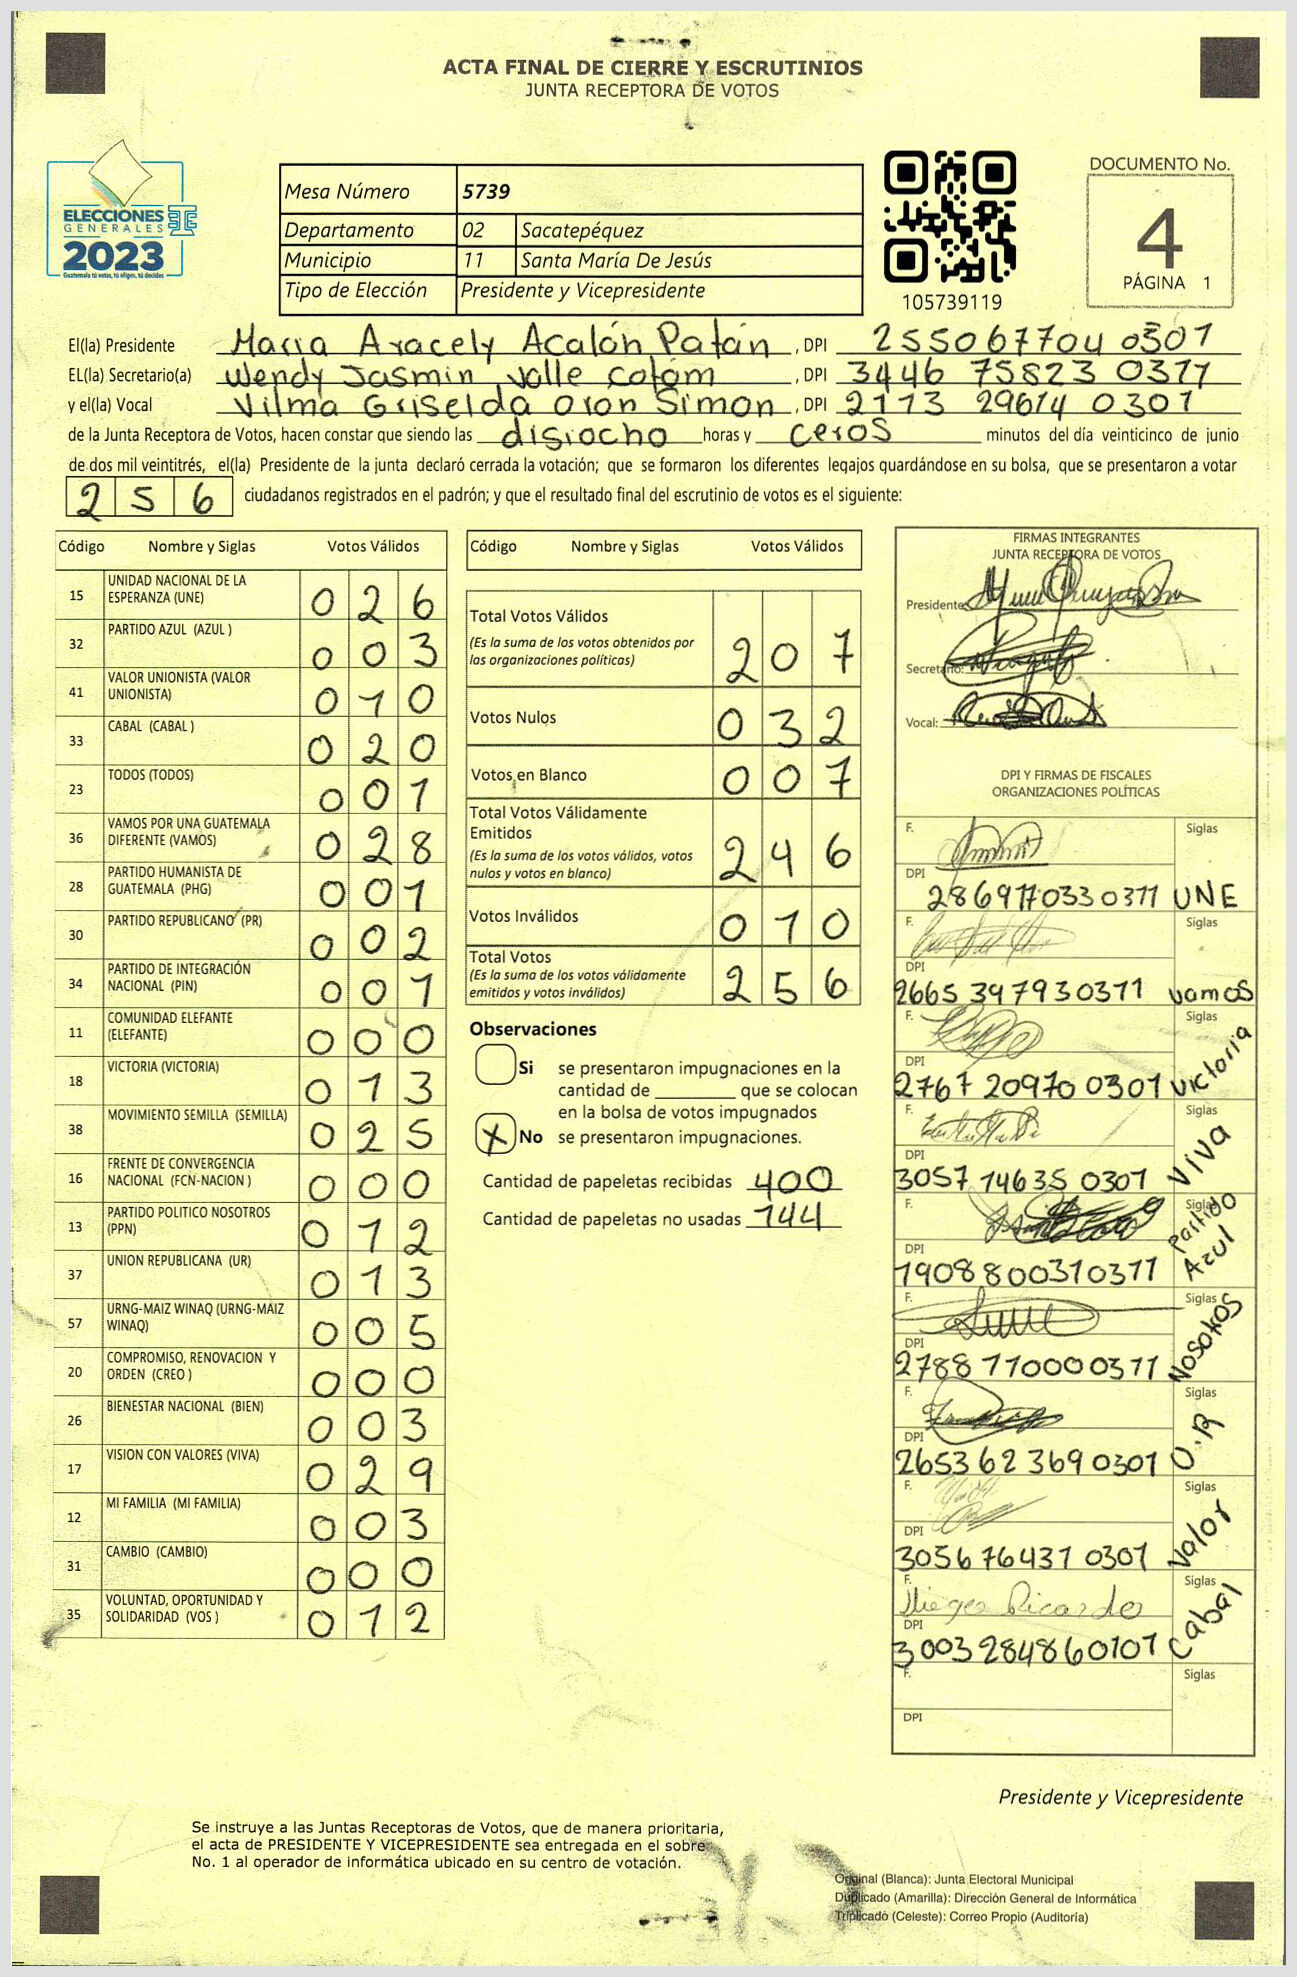 ACTA FINAL DE CIERRE Y ESCRUTINIOS
JUNTA RECEPTORA DE VOTOS
ELECCIONES
GENERALES
2023
Guatemala tú votas, tú eliges, tú decides
Mesa Número 5739
Departamento 02 Sacatepéquez
Municipio 11 Santa María De Jesús
Tipo de Elección Presidente y Vicepresidente
105739119
DOCUMENTO No.
4
PÁGINA 1
El(la) Presidente Maria Aracely Acalón Patán , DPI 255067704 0301
EL(la) Secretario(a) Wendy Jasmin Valle Cotóm , DPI 3446 75823 0311
y el(la) Vocal Vilma Griselda Oron Simon , DPI 2113 29614 0301
de la Junta Receptora de Votos, hacen constar que siendo las disiocho horas y ceros minutos del día veinticinco de junio
de dos mil veintitrés, el(la) Presidente de la junta declaró cerrada la votación; que se formaron los diferentes legajos guardándose en su bolsa, que se presentaron a votar
256 ciudadanos registrados en el padrón; y que el resultado final del escrutinio de votos es el siguiente:
Código Nombre y Siglas Votos Válidos
15 UNIDAD NACIONAL DE LA ESPERANZA (UNE) 026
32 PARTIDO AZUL (AZUL ) 003
41 VALOR UNIONISTA (VALOR UNIONISTA) 010
33 CABAL (CABAL ) 020
23 TODOS (TODOS) 001
36 VAMOS POR UNA GUATEMALA DIFERENTE (VAMOS) 028
28 PARTIDO HUMANISTA DE GUATEMALA (PHG) 001
30 PARTIDO REPUBLICANO (PR) 002
34 PARTIDO DE INTEGRACIÓN NACIONAL (PIN) 001
11 COMUNIDAD ELEFANTE (ELEFANTE) 000
18 VICTORIA (VICTORIA) 013
38 MOVIMIENTO SEMILLA (SEMILLA) 025
16 FRENTE DE CONVERGENCIA NACIONAL (FCN-NACION ) 000
13 PARTIDO POLITICO NOSOTROS (PPN) 012
37 UNION REPUBLICANA (UR) 013
57 URNG-MAIZ WINAQ (URNG-MAIZ WINAQ) 005
20 COMPROMISO, RENOVACION Y ORDEN (CREO ) 000
26 BIENESTAR NACIONAL (BIEN) 003
17 VISION CON VALORES (VIVA) 029
12 MI FAMILIA (MI FAMILIA) 003
31 CAMBIO (CAMBIO) 000
35 VOLUNTAD, OPORTUNIDAD Y SOLIDARIDAD (VOS ) 012
Código Nombre y Siglas Votos Válidos
Total Votos Válidos
(Es la suma de los votos obtenidos por las organizaciones políticas) 207
Votos Nulos 032
Votos en Blanco 007
Total Votos Válidamente Emitidos
(Es la suma de los votos válidos, votos nulos y votos en blanco) 246
Votos Inválidos 010
Total Votos
(Es la suma de los votos válidamente emitidos y votos inválidos) 256
Observaciones
Si se presentaron impugnaciones en la
cantidad de ________ que se colocan
en la bolsa de votos impugnados
X No se presentaron impugnaciones.
Cantidad de papeletas recibidas 400
Cantidad de papeletas no usadas 144
FIRMAS INTEGRANTES
JUNTA RECEPTORA DE VOTOS
Presidente:
Secretario:
Vocal:
DPI Y FIRMAS DE FISCALES
ORGANIZACIONES POLÍTICAS
F. Siglas
DPI 2869170330311 UNE
F. Siglas
DPI 2665 397930311 vamos
F. Siglas
DPI 2767 20970 0301 victoria
F. Siglas
DPI 3057 14635 0301 Viva
F. Siglas
DPI 1908800310311 Partido Azul
F. Siglas
DPI 2788 110000311 Nosotros
F. Siglas
DPI 2653 62 369 0301 U.R
F. Siglas
DPI 3056 76431 0301 Valor
F. Diego Ricardo Siglas
DPI 3003284860101 Cabal
F. Siglas
DPI
Presidente y Vicepresidente
Se instruye a las Juntas Receptoras de Votos, que de manera prioritaria,
el acta de PRESIDENTE Y VICEPRESIDENTE sea entregada en el sobre
No. 1 al operador de informática ubicado en su centro de votación.
Original (Blanca): Junta Electoral Municipal
Duplicado (Amarilla): Dirección General de Informática
Triplicado (Celeste): Correo Propio (Auditoría)